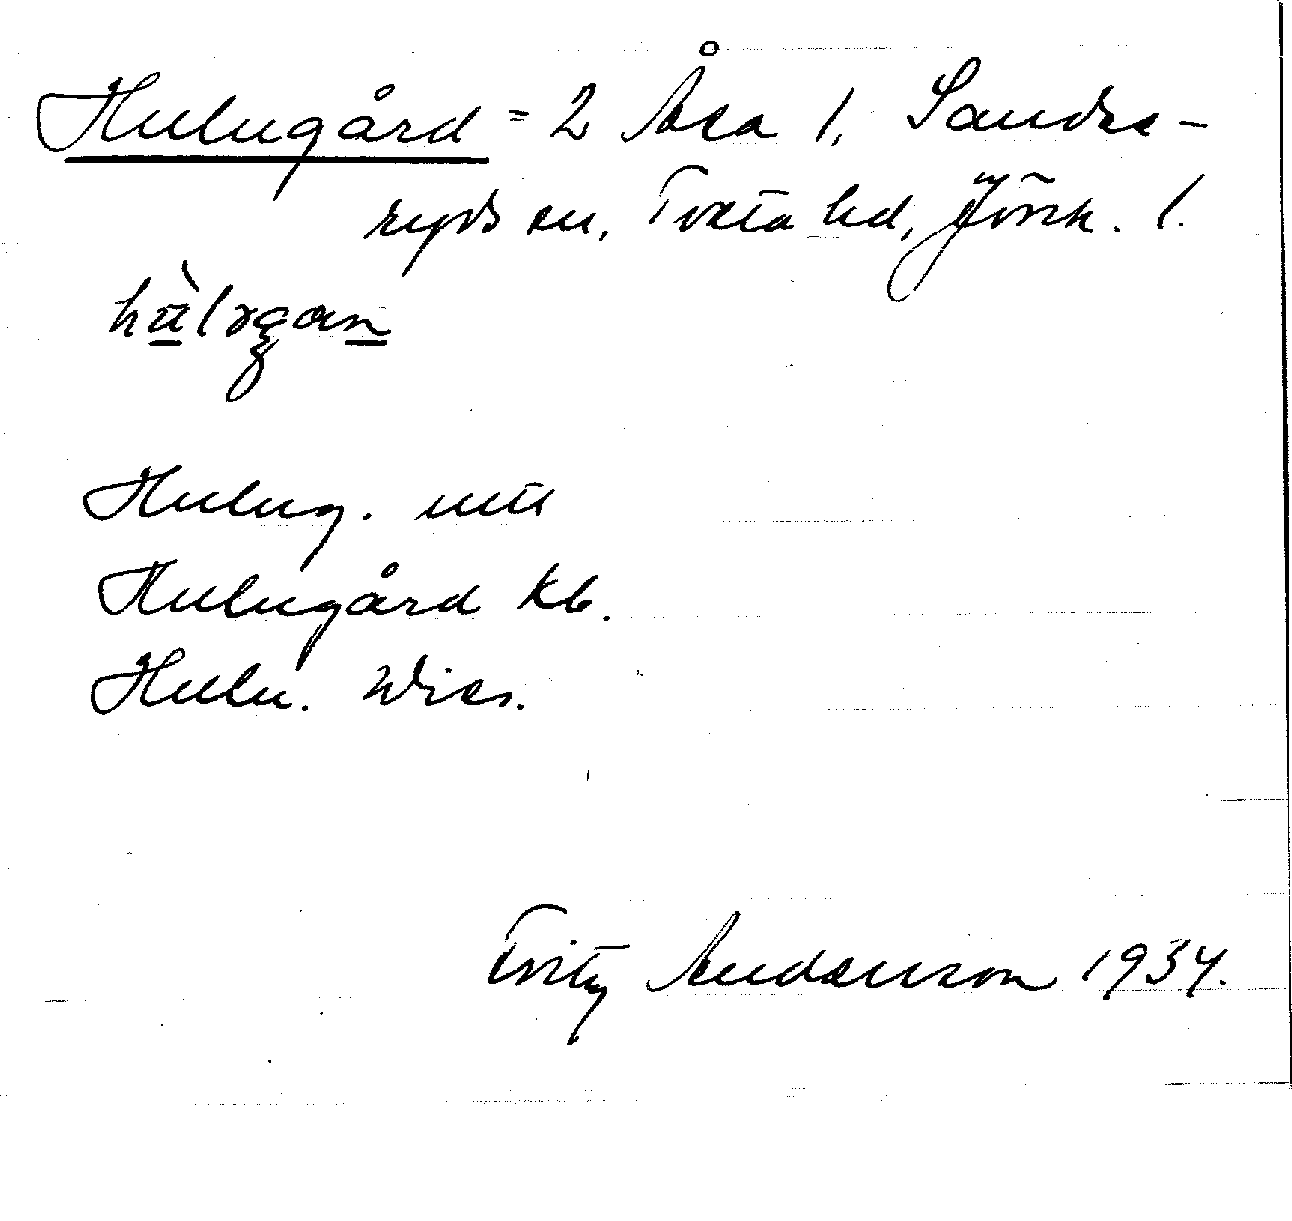 Hulugård = 2 Åsa 1, Sands-
ryds sn, Tveta hd, Jönk. l.
Hulug. utt
Hulugård Kb.
Hulu. Wies.
Fritz Anderson 1934.